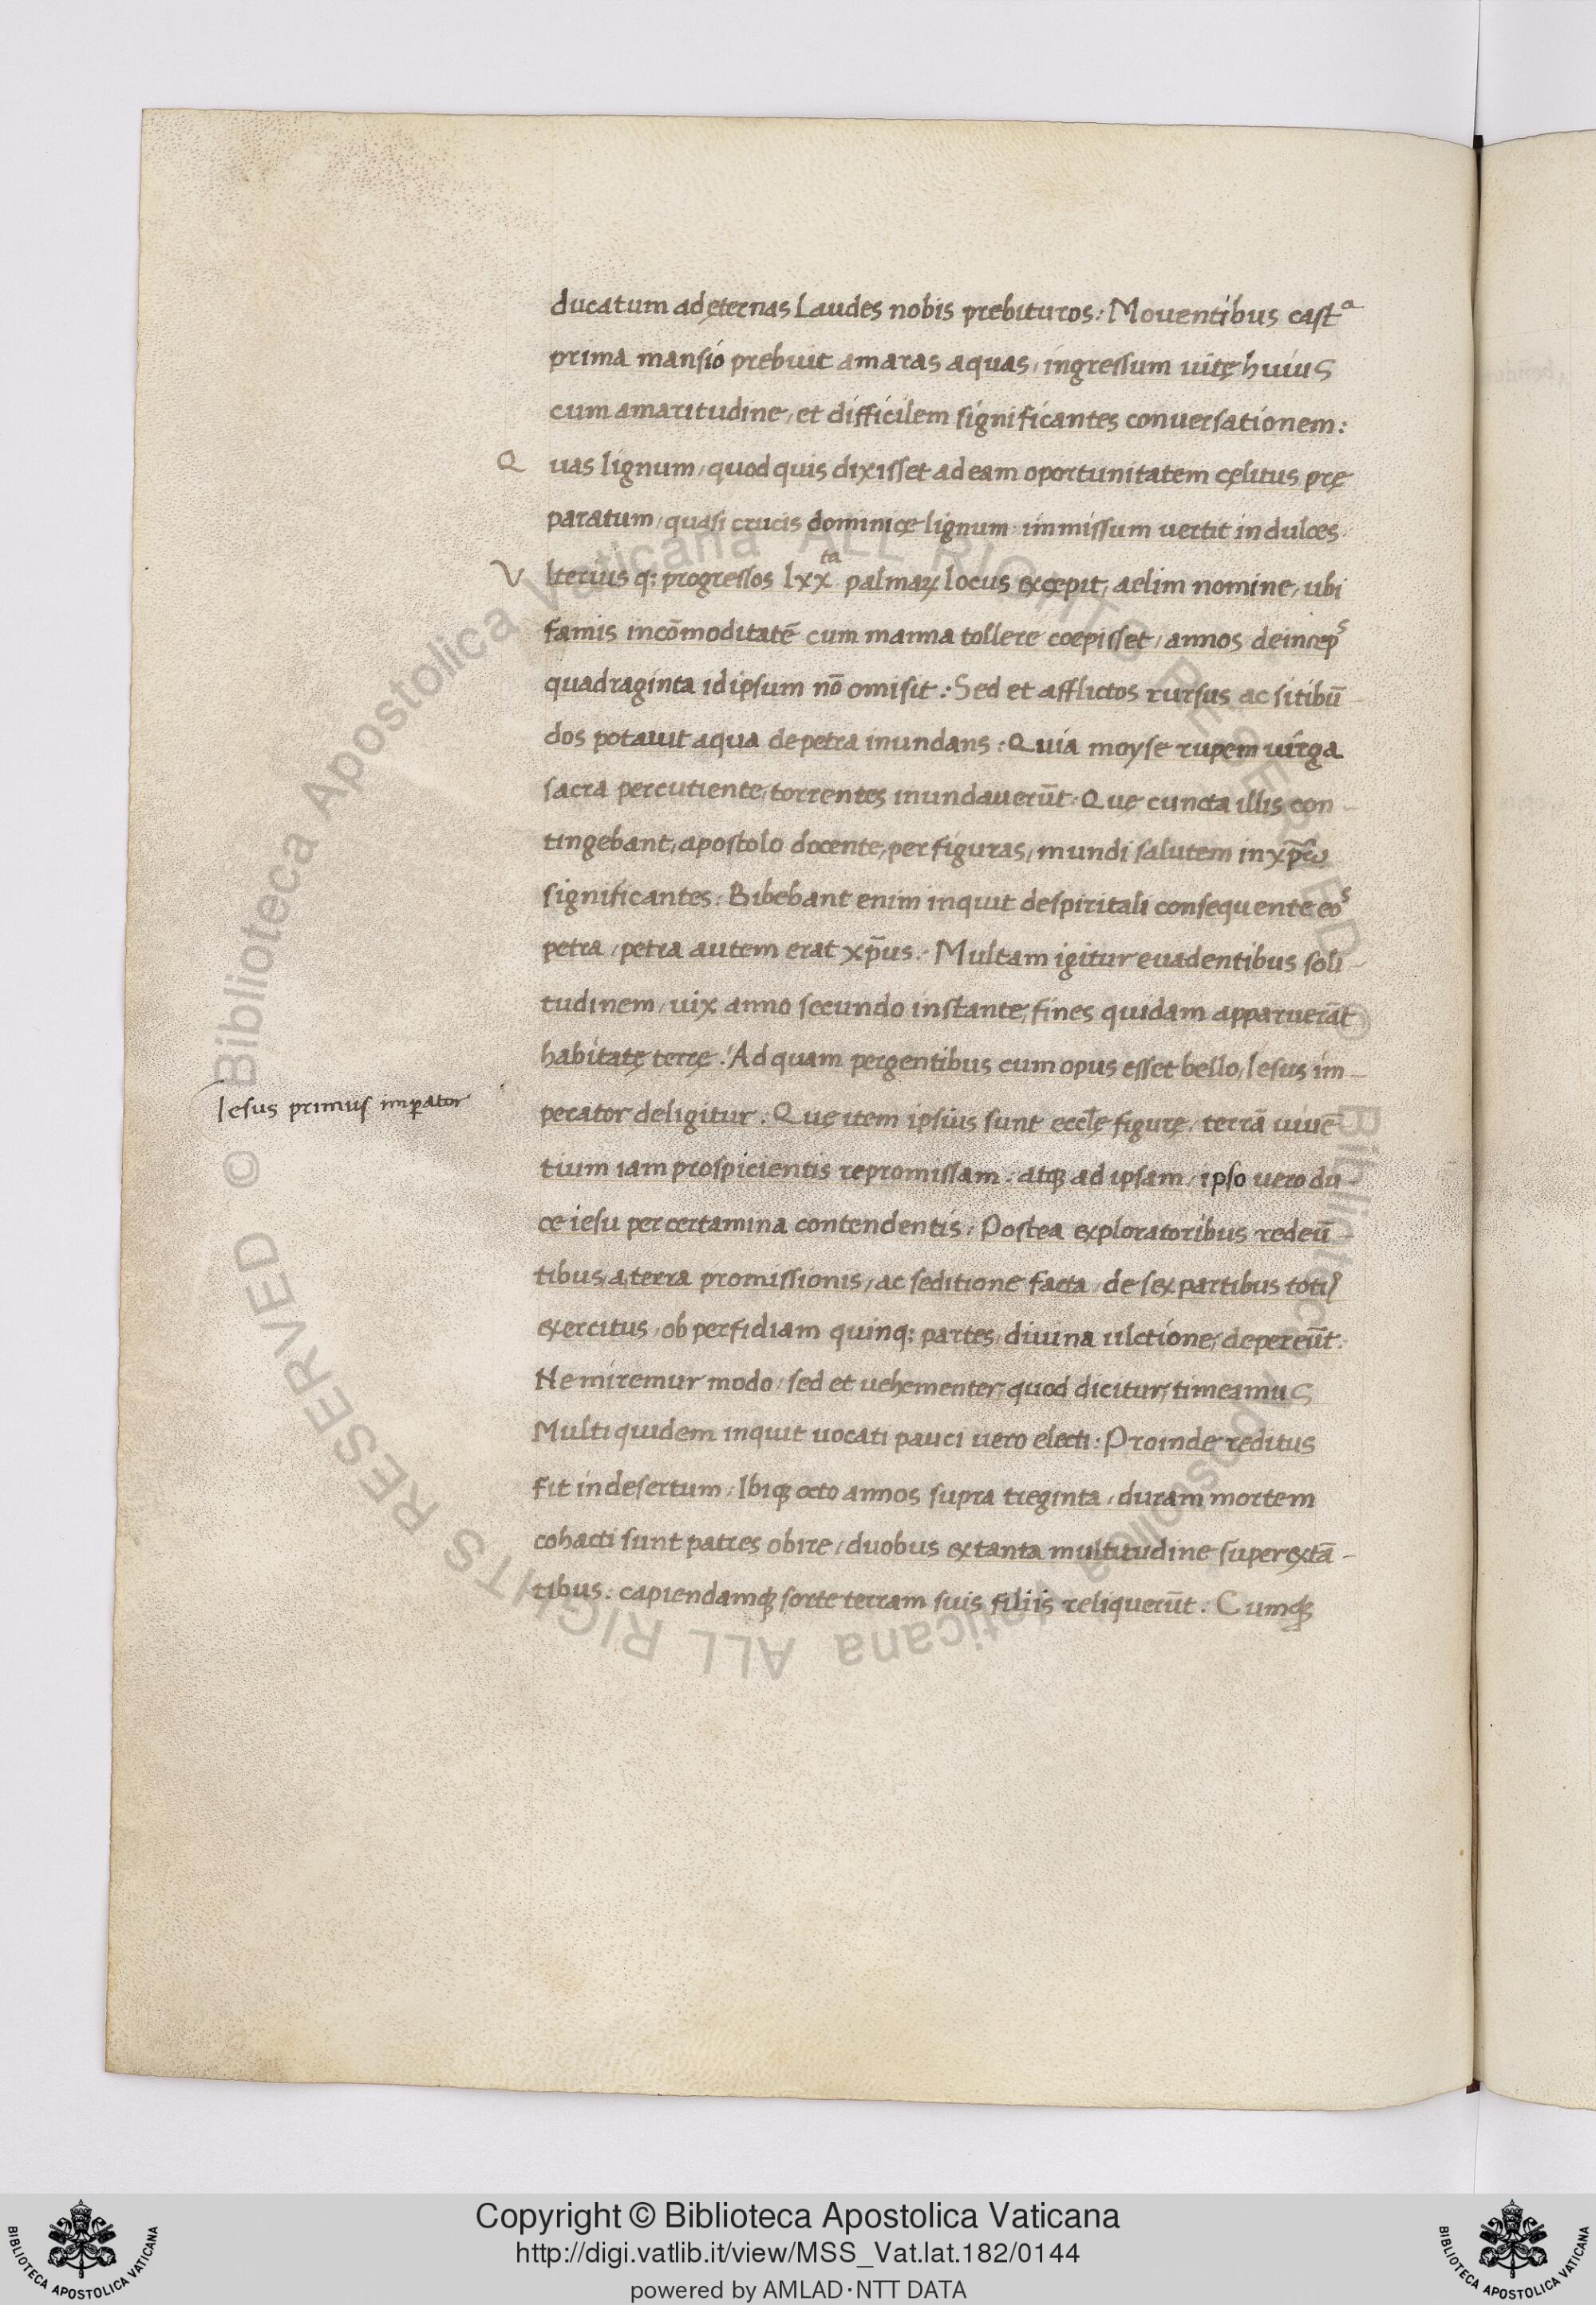 ducatum ad ęternas Laudes nobis prebituros: Mouentibus castᵃ
prima mansio prebuit amaras aquas, ingressum uitę huius
cum amaritudine, et difficilem significantes conuersationem:
Quas lignum, quod quis dixisset ad eam oportunitatem cęlitus prę
paratum, quasi crucis dominicę lignum immissum vertit in dulces.
Vlterius q; progressos lxxᵗᵃ palmaꝝ locus excępit, aelim nomine, ubi
famis incōmoditatē cum manna tollere coepisset, annos deincepˢ
quadraginta id ipsum nō omisit: Sed et afflictos rursus ac sitibū
dos potauit aqua de petra inundans: Quia moyse rupem uirga
sacra percutiente, torrentes inundauerūt. Quę cuncta illis con-
tingebant, apostolo docente, per figuras, mundi salutem in xp̄o
significantes: Bibebant enim inquit de spiritali consequente eoˢ
petra, petra autem erat xp̄us. Multam igitur euadentibus soli-
tudinem, uix anno secundo instante, fines quidam apparuerāt
habitatę terrę. Ad quam pergentibus cum opus esset bello, Iesus im-
Iesus primus imꝑator
perator deligitur: Quę item ipsius sunt eccl̄ę figurę, terrā uiuē
tium iam prospicientis repromissam. atqꝫ ad ipsam, ipso uero du-
ce iesu per certamina contendentis: Postea exploratoribus redeū-
tibus, a terra promissionis, ac seditione facta, de sex partibus totiꝰ
exercitus, ob perfidiam quinq; partes, diuina ulctione, depereūt:
Ne miremur modo, sed et uehementer, quod dicitur, timeamus
Multi quidem inquit uocati pauci uero electi: Proinde reditus
fit in desertum, Ibiqꝫ octo annos supra treginta, duram mortem
cohacti sunt patres obire, duobus ex tanta multitudine superextā-
tibus: capiendamqꝫ sorte terram suis filiis reliquerūt. Cumqꝫ
Copyright © Biblioteca Apostolica Vaticana
http://digi.vatlib.it/view/MSS_Vat.lat.182/0144
powered by AMLAD·NTT DATA
BIBLIOTECA APOSTOLICA VATICANA
BIBLIOTECA APOSTOLICA VATICANA
© Biblioteca Apostolica Vaticana ALL RIGHTS RESERVED
© Biblioteca Apostolica Vaticana ALL RIGHTS RESERVED